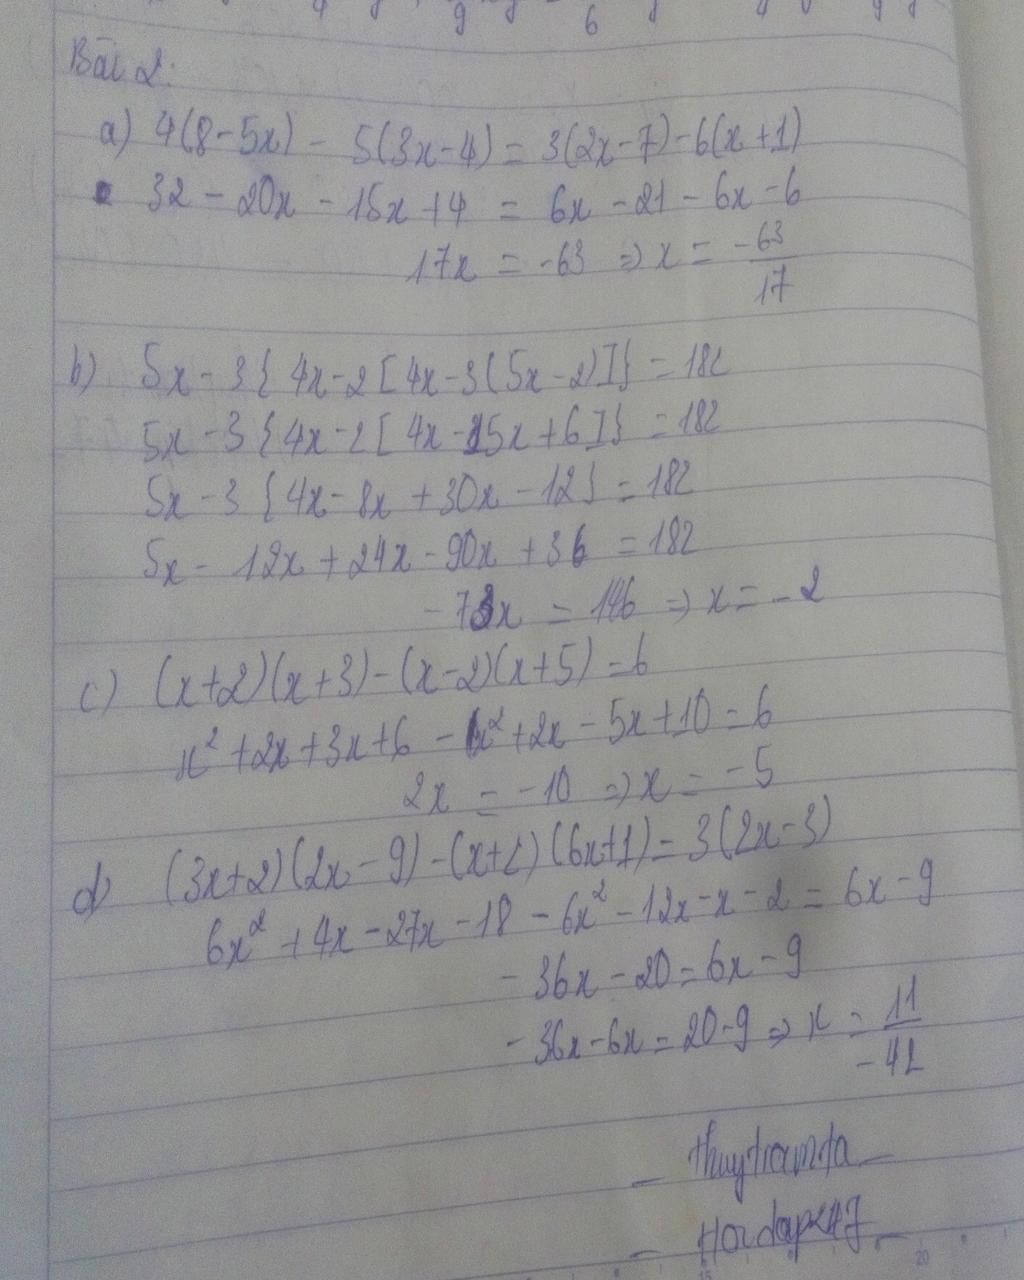 Bài 2:
a) 4(8-5x) - 5(3x-4) = 3(2x-7)-6(x+1)
32 - 20x - 15x + 4 = 6x - 21 - 6x - 6
17x = -63 => x = -63/17
b) 5x - 3{4x-2[4x-3(5x-2)]} = 182
5x - 3{4x-2[4x-15x+6]} = 182
5x - 3{4x-8x+30x-12} = 182
5x - 12x + 24x - 90x + 36 = 182
-73x = 146 => x = -2
c) (x+2)(x+3)-(x-2)(x+5) = 6
x² + 2x + 3x + 6 - x² + 2x - 5x + 10 = 6
2x = -10 => x = -5
d) (3x+2)(2x-9)-(x+2)(6x+1) = 3(2x-3)
6x² + 4x - 27x - 18 - 6x² - 12x - x - 2 = 6x - 9
-36x - 20 = 6x - 9
-36x - 6x = 20 - 9 => x = 11/-42
- thuytramta -
- Hoidap247 -
15 20